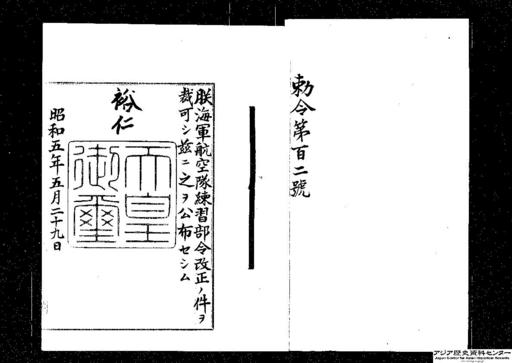 勅令第百二號
朕海軍航空隊練習部令改正ノ件ヲ
裁可シ茲ニ之ヲ公布セシム
裕仁
天皇御璽
昭和五年五月二十九日
アジア歴史資料センター
Japan Center for Asian Historical Records